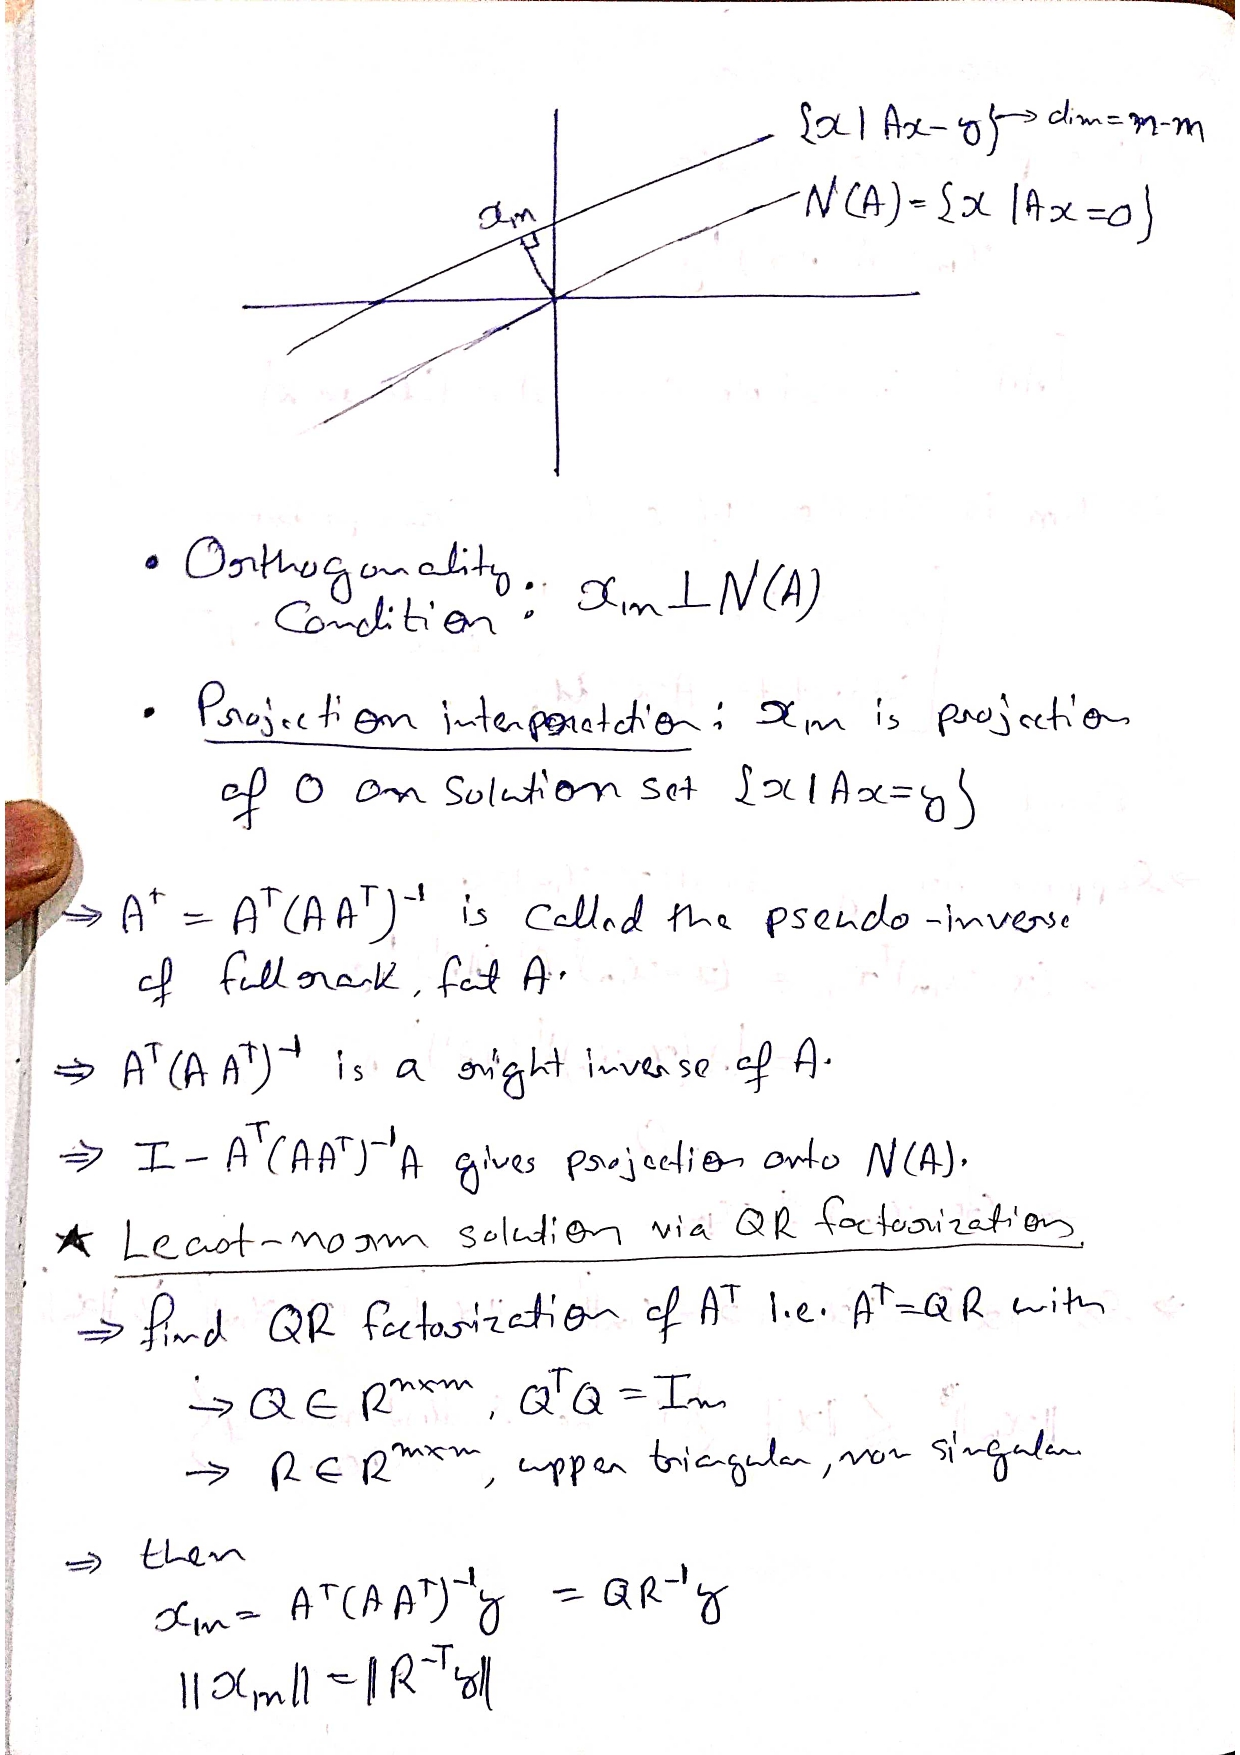 {x | Ax-y} → dim = n-m
N(A) = {x | Ax = 0}
xₘ
• Orthogonality
Condition : xₘ ⊥ N(A)
• Projection interporatation : xₘ is projection
of 0 on Solution set {x | Ax = y}
⇒ A⁺ = Aᵀ(AAᵀ)⁻¹ is called the pseudo-inverse
of full rank, fat A.
⇒ Aᵀ(AAᵀ)⁻¹ is a right inverse of A.
⇒ I - Aᵀ(AAᵀ)⁻¹A gives projection onto N(A).
★ Least-norm solution via QR factorization
⇒ find QR factorization of Aᵀ i.e. Aᵀ = QR with
→ Q ∈ Rⁿˣᵐ, QᵀQ = Iₘ
→ R ∈ Rᵐˣᵐ, upper triangular, non singular
⇒ then
xₘ = Aᵀ(AAᵀ)⁻¹y = QR⁻¹y
||xₘ|| = ||R⁻ᵀy||